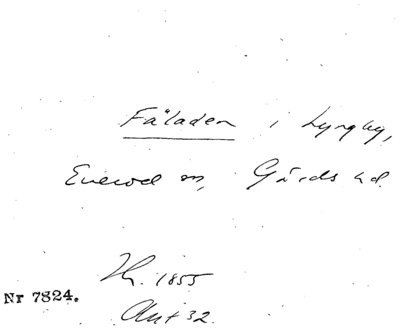 Fäladen i Lyngby,
Everöd sn, Gärds hd.
1855
Nr 7824.
Akt 32.